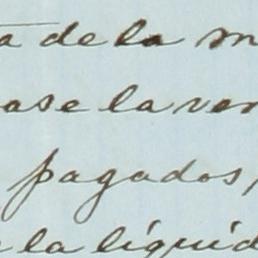 a de la m
ase la ven
pagados,
la líquid